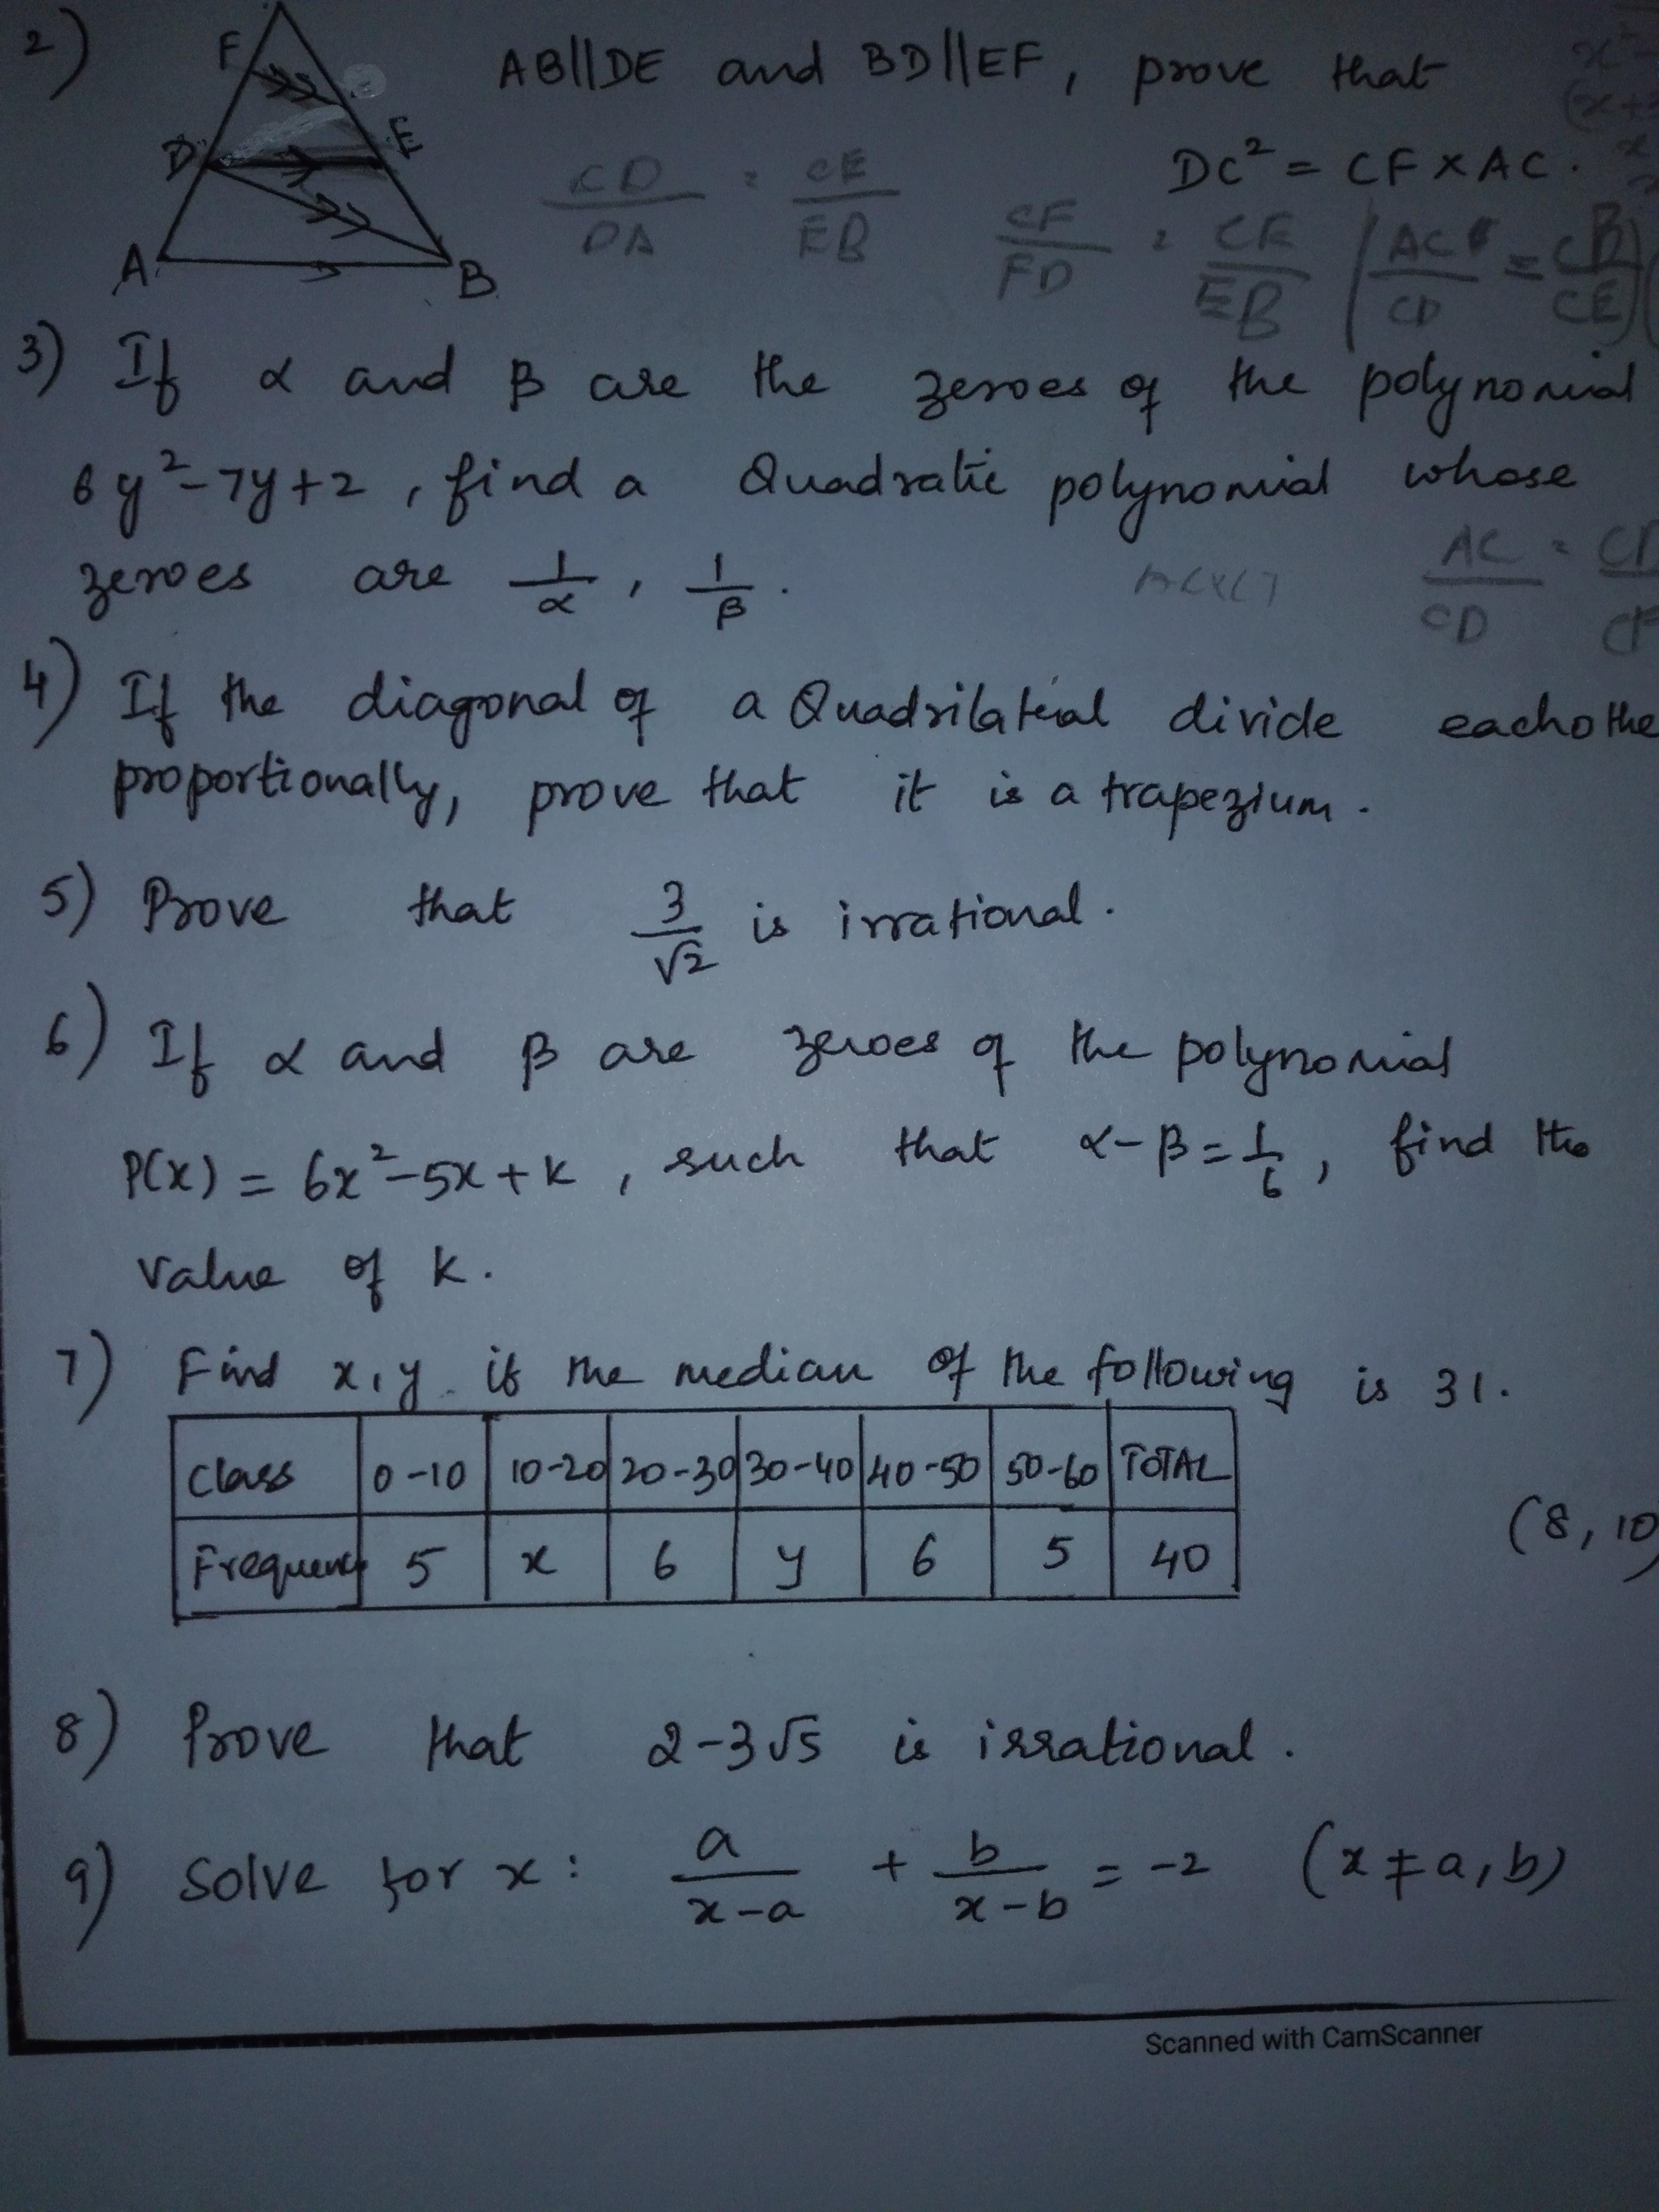 2) F D E A B AB||DE and BD||EF, prove that
DC² = CF X AC.
CD/DA = CE/EB CF/FD = CE/EB | AC/CD = CB/CE
3) If α and β are the zeroes of the polynomial
6y²-7y+2, find a Quadratic polynomial whose
zeroes are 1/α, 1/β.
AC/CD =
4) If the diagonal of a Quadrilateral divide eachothe
proportionally, prove that it is a trapezium.
5) Prove that 3/√2 is irrational.
6) If α and β are zeroes of the polynomial
P(x) = 6x²-5x+k, such that α-β=1/6, find the
value of k.
7) Find x,y if the median of the following is 31.
Class 0-10 10-20 20-30 30-40 40-50 50-60 TOTAL
Frequency 5 x 6 y 6 5 40
(8, 10
8) Prove that 2-3√5 is irrational.
9) Solve for x: a/x-a + b/x-b = -2 (x≠a,b)
Scanned with CamScanner